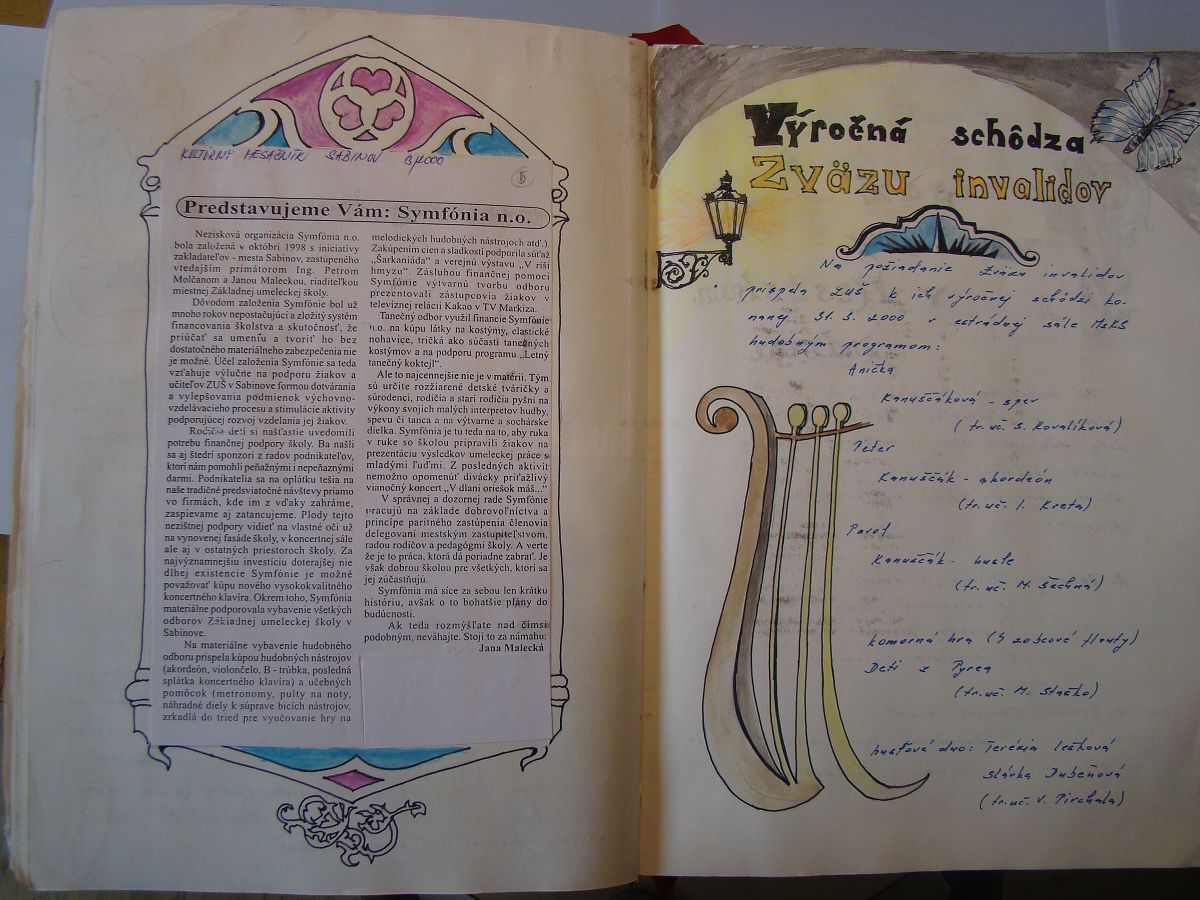 KULTÚRNY MESAČNÍK SABINOV 3/2000
5
Predstavujeme Vám: Symfónia n.o.
Nezisková organizácia Symfónia n.o.
bola založená v októbri 1998 s iniciatívy
zakladateľov - mesta Sabinov, zastúpeného
vtedajším primátorom Ing. Petrom
Molčanom a Janou Maleckou, riaditeľkou
miestnej Základnej umeleckej školy.
Dôvodom založenia Symfónie bol už
mnoho rokov nepostačujúci a zložitý systém
financovania školstva a skutočnosť, že
priúčať sa umeniu a tvoriť ho bez
dostatočného materiálneho zabezpečenia nie
je možné. Účel založenia Symfónie sa teda
vzťahuje výlučne na podporu žiakov a
učiteľov ZUŠ v Sabinove formou dotvárania
a vylepšovania podmienok výchovno-
vzdelávacieho procesu a stimulácie aktivity
podporujúcej rozvoj vzdelania jej žiakov.
Rodičia detí si našťastie uvedomili
potrebu finančnej podpory školy. Ba našli
sa aj štedrí sponzori z radov podnikateľov,
ktorí nám pomohli peňažnými i nepeňaznými
darmi. Podnikatelia sa na oplátku tešia na
naše tradičné predsviatočné návštevy priamo
vo firmách, kde im z vďaky zahráme,
zaspievame aj zatancujeme. Plody tejto
nezištnej podpory vidieť na vlastné oči už
na vynovenej fasáde školy, v koncertnej sále
ale aj v ostatných priestoroch školy. Za
najvýznamnejšiu investíciu doterajšej nie
dlhej existencie Symfónie je možné
považovať kúpu nového vysokokvalitného
koncertného klavíra. Okrem toho, Symfónia
materiálne podporovala vybavenie všetkých
odborov Základnej umeleckej školy v
Sabinove.
Na materiálne vybavenie hudobného
odboru prispela kúpou hudobných nástrojov
(akordeón, violončelo, B - trúbka, posledná
splátka koncertného klavíra) a učebných
pomôcok (metronomy, pulty na noty,
náhradné diely k súprave bicích nástrojov,
zrkadlá do tried pre vyučovanie hry na
melodických hudobných nástrojoch atď.).
Zakúpením cien a sladkostí podporila súťaž
„Šarkaniáda“ a verejnú výstavu „V ríši
hmyzu“. Zásluhou finančnej pomoci
Symfónie výtvarnú tvorbu odboru
prezentovali zástupcovia žiakov v
televíznej relácii Kakao v TV Markíza.
Tanečný odbor využil financie Symfónie
n.o. na kúpu látky na kostýmy, elastické
nohavice, tričká ako súčasti tanečných
kostýmov a na podporu programu „Letný
tanečný koktejl“.
Ale to najcennejšie nie je v matérii. Tým
sú určite rozžiarené detské tváričky a
súrodenci, rodičia a starí rodičia pyšní na
výkony svojich malých interpretov hudby,
spevu či tanca a na výtvarné a sochárske
dielka. Symfónia je tu teda na to, aby ruka
v ruke so školou pripravili žiakov na
prezentáciu výsledkov umeleckej práce s
mladými ľuďmi. Z posledných aktivít
nemožno opomenúť divácky príťažlivý
vianočný koncert „V dlani oriešok máš...“
V správnej a dozornej rade Symfónie
pracujú na základe dobrovoľníctva a
princípe paritného zastúpenia členovia
delegovaní mestským zastupiteľstvom,
radou rodičov a pedagógmi školy. A verte
že je to práca, ktorá dá poriadne zabrať. Je
však dobrou školou pre všetkých, ktorí sa
jej zúčastňujú.
Symfónia má síce za sebou len krátku
históriu, avšak o to bohatšie plány do
budúcnosti.
Ak teda rozmýšľate nad čímsi
podobným, neváhajte. Stojí to za námahu.
Jana Malecká
Výročná schôdza
Zväzu invalidov
Na požiadanie Zväzu invalidov
prispela ZUŠ k ich výročnej schôdzi ko-
nanej 31. 3. 2000 v estrádnej sále MsKS
hudobným programom:
Anička
Kanuščáková - spev
(tr. uč. S. Kovalíková)
Peter
Kanuščák - akordeón
(tr. uč. I. Kreta)
Pavol
Kanuščák - husle
(tr. uč. M. Šechná)
komorná hra (4 zobcové flauty)
Deti z Pyrea
(tr. uč. M. Staško)
husľové duo: Terézia Lešková
Slávka Dubeňová
(tr. uč. V. Pirchala)